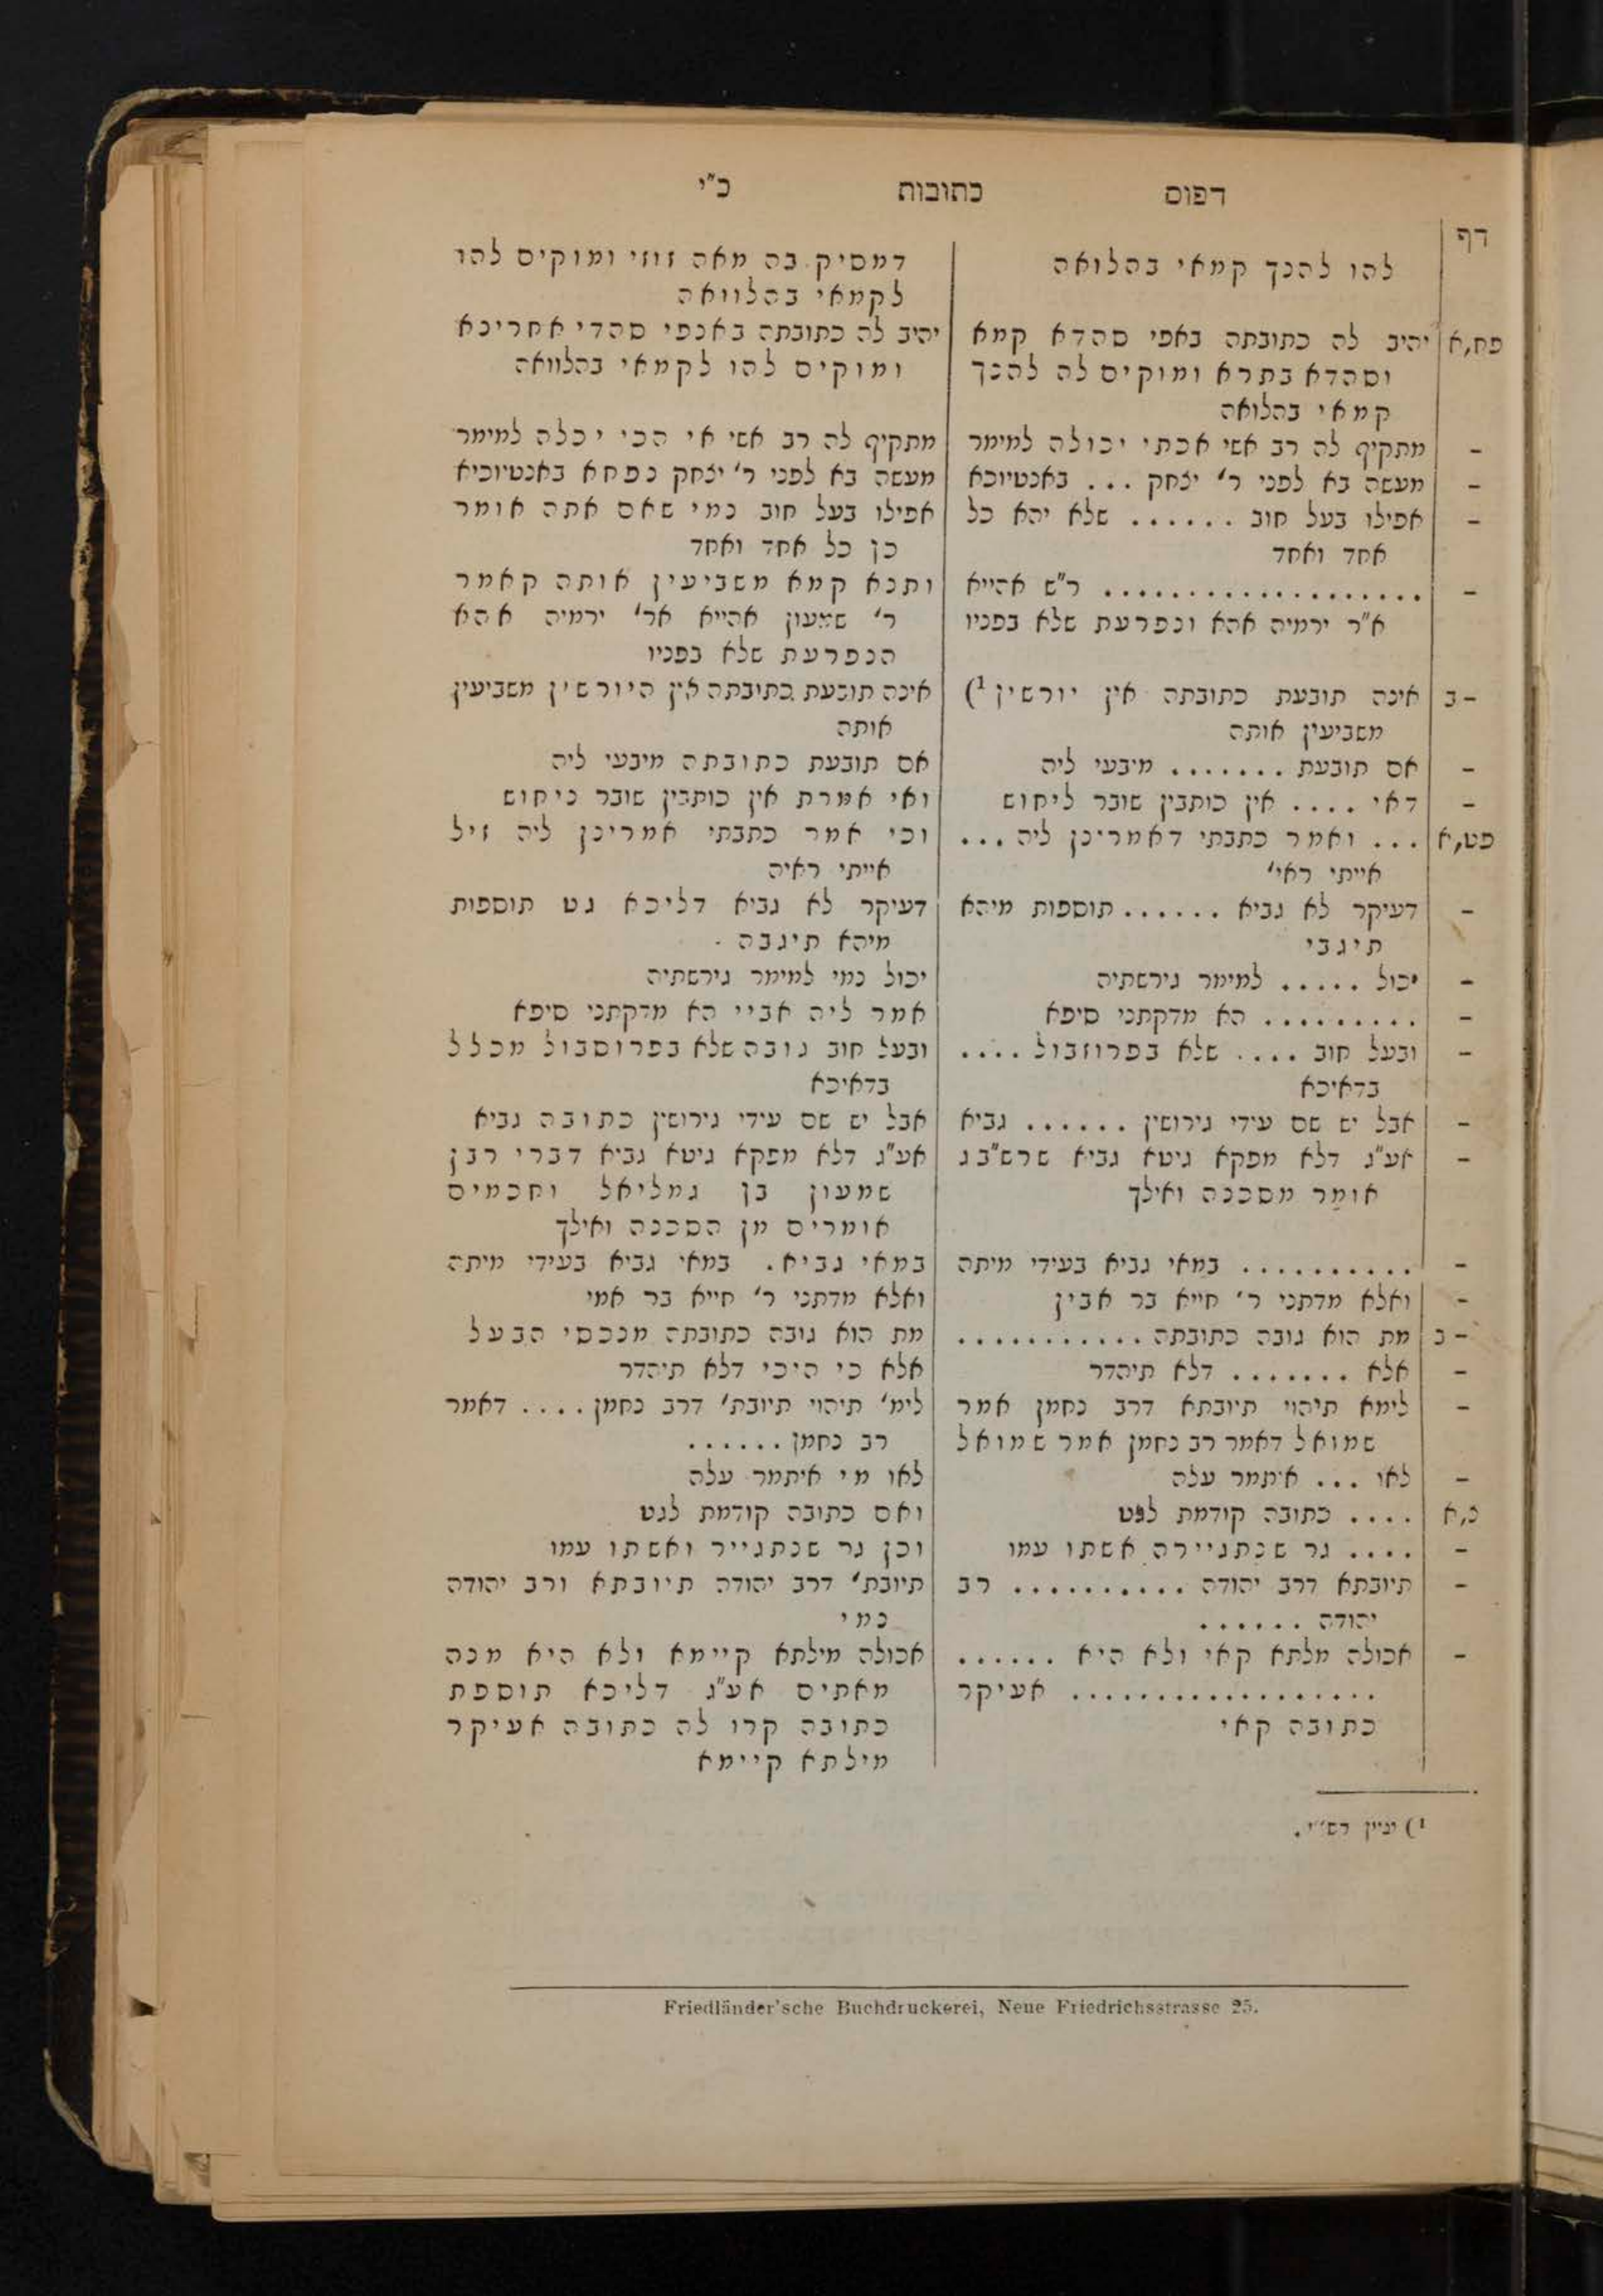 דפוס כתובות כ"י
דף
להו להנך קמאי בהלואה
דמסיק בה מאה זוזי ומוקים להו
לקמאי בהלוואה
פח,א יהיב לה כתובתה באפי סהדא קמא
יהיב לה כתובתה באנפי סהדי אחרינא
וסהדא בתרא ומוקים לה להנך
ומוקים להו לקמאי בהלוואה
קמאי בהלואה
- מתקיף לה רב אשי אכתי יכולה למימר
מתקיף לה רב אשי אי הכי יכלה למימר
- מעשה בא לפני ר' יצחק ... באנטיוכא
מעשה בא לפני ר' יצחק נפחא באנטיוכיא
- אפילו בעל חוב ...... שלא יהא כל
אפילו בעל חוב נמי שאם אתה אומר
אחד ואחד
כן כל אחד ואחד
- ................... ר"ש אהייא
ותנא קמא משביעין אותה קאמר
א"ר ירמיה אהא ונפרעת שלא בפניו
ר' שמעון אהייא אר' ירמיה אהא
הנפרעת שלא בפניו
-ב אינה תובעת כתובתה אין יורשין ¹)
אינה תובעת כתובתה אין היורשין משביעין
משביעין אותה
אותה
- אם תובעת ....... מיבעי ליה
אם תובעת כתובתה מיבעי ליה
- דאי .... אין כותבין שובר ליחוש
ואי אמרת אין כותבין שובר ניחוש
פט,א ... ואמר כתבתי דאמרינן ליה ...
וכי אמר כתבתי אמרינן ליה זיל
אייתי ראי'
אייתי ראיה
- דעיקר לא גביא ...... תוספות מיהא
דעיקר לא גביא דליכא גט תוספות
תיגבי
מיהא תיגבה
- יכול ..... למימר גירשתיה
יכול נמי למימר גירשתיה
- ......... הא מדקתני סיפא
אמר ליה אביי הא מדקתני סיפא
- ובעל חוב .... שלא בפרוזבול ....
ובעל חוב גובה שלא בפרוסבול מכלל
בדאיכא
בדאיכא
- אבל יש שם עידי גירושין ...... גביא
אבל יש שם עידי גירושין כתובה גביא
- אע"ג דלא מפקא גיטא גביא שרשב"ג
אע"ג דלא מפקא גיטא גביא דברי רבן
אומר מסכנה ואילך
שמעון בן גמליאל וחכמים
אומרים מן הסכנה ואילך
- .......... במאי גביא בעידי מיתה
במאי גביא. במאי גביא בעידי מיתה
- ואלא מדתני ר' חייא בר אבין
ואלא מדתני ר' חייא בר אמי
-ב מת הוא גובה כתובתה ...........
מת הוא גובה כתובתה מנכסי הבעל
- אלא ....... דלא תיהדר
אלא כי היכי דלא תיהדר
- לימא תיהוי תיובתא דרב נחמן אמר
לימ' תיהוי תיובת' דרב נחמן .... דאמר
שמואל דאמר רב נחמן אמר שמואל
רב נחמן ......
- לאו ... איתמר עלה
לאו מי איתמר עלה
צ,א .... כתובה קודמת לגט
ואם כתובה קודמת לגט
- .... גר שנתגיירה אשתו עמו
וכן גר שנתגייר ואשתו עמו
- תיובתא דרב יהודה .......... רב
תיובת' דרב יהודה תיובתא ורב יהודה
יהודה ......
נמי
- אכולה מלתא קאי ולא היא ......
אכולה מילתא קיימא ולא היא מנה
.................. אעיקר
מאתים אע"ג דליכא תוספת
כתובה קאי
כתובה קרו לה כתובה אעיקר
מילתא קיימא
¹) ועיין רש"י.
Friedländer'sche Buchdruckerei, Neue Friedrichsstrasse 25.